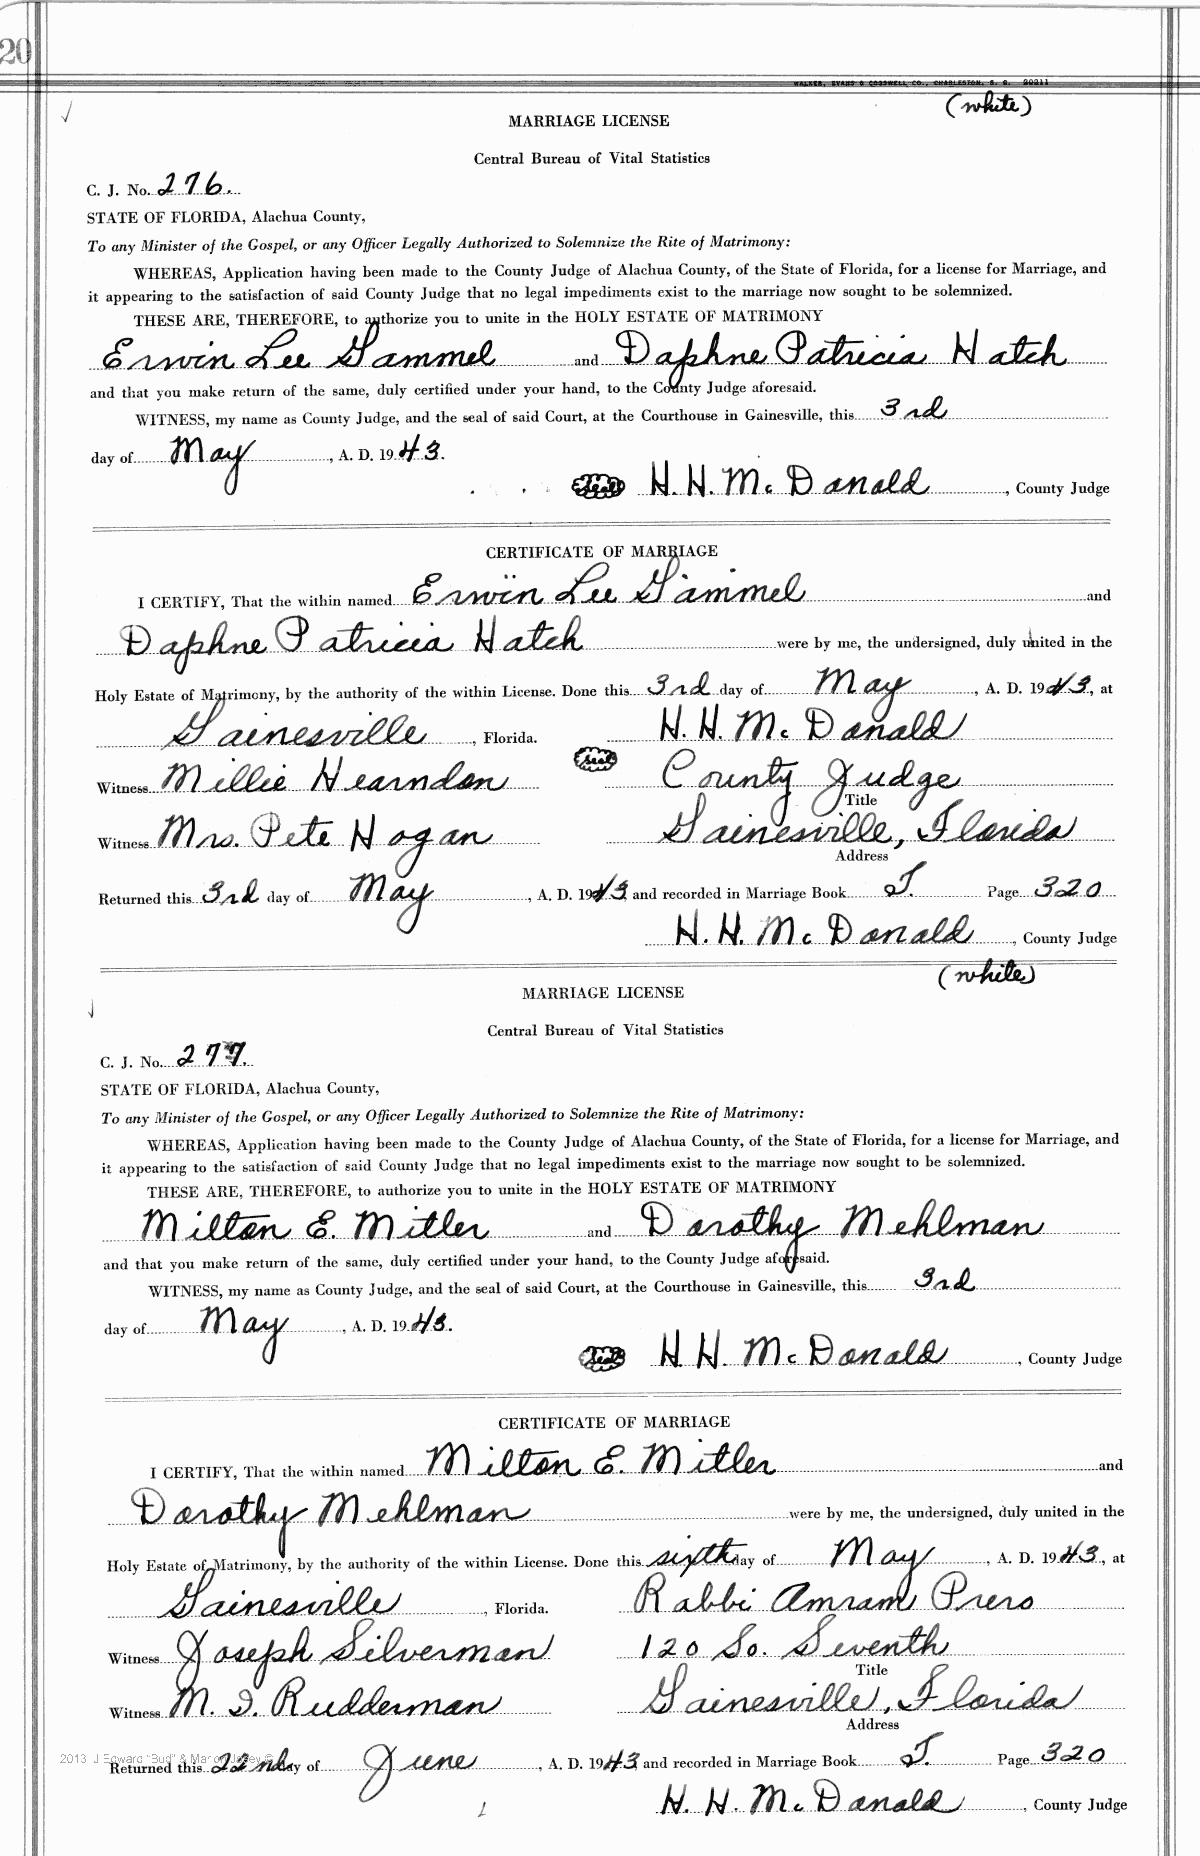 20
WALKER, EVANS & COGSWELL CO., CHARLESTON, S. C. 20211
(white)
MARRIAGE LICENSE
Central Bureau of Vital Statistics
C. J. No. 276.
STATE OF FLORIDA, Alachua County,
To any Minister of the Gospel, or any Officer Legally Authorized to Solemnize the Rite of Matrimony:
WHEREAS, Application having been made to the County Judge of Alachua County, of the State of Florida, for a license for Marriage, and
it appearing to the satisfaction of said County Judge that no legal impediments exist to the marriage now sought to be solemnized.
THESE ARE, THEREFORE, to authorize you to unite in the HOLY ESTATE OF MATRIMONY
Erwin Lee Gammel and Daphne Patricia Hatch
and that you make return of the same, duly certified under your hand, to the County Judge aforesaid.
WITNESS, my name as County Judge, and the seal of said Court, at the Courthouse in Gainesville, this 3rd
day of May, A. D. 1943.
seal H. H. McDonald, County Judge
CERTIFICATE OF MARRIAGE
I CERTIFY, That the within named Erwin Lee Gammel and
Daphne Patricia Hatch were by me, the undersigned, duly united in the
Holy Estate of Matrimony, by the authority of the within License. Done this 3rd day of May, A. D. 1943, at
Gainesville, Florida. H. H. McDonald
seal
Witness Millie Hearndon County Judge
Title
Witness Mrs. Pete Hogan Gainesville, Florida
Address
Returned this 3rd day of May, A. D. 1943 and recorded in Marriage Book T. Page 320
H. H. McDonald, County Judge
(white)
MARRIAGE LICENSE
Central Bureau of Vital Statistics
C. J. No. 277.
STATE OF FLORIDA, Alachua County,
To any Minister of the Gospel, or any Officer Legally Authorized to Solemnize the Rite of Matrimony:
WHEREAS, Application having been made to the County Judge of Alachua County, of the State of Florida, for a license for Marriage, and
it appearing to the satisfaction of said County Judge that no legal impediments exist to the marriage now sought to be solemnized.
THESE ARE, THEREFORE, to authorize you to unite in the HOLY ESTATE OF MATRIMONY
Milton E. Mitler and Dorothy Mehlman
and that you make return of the same, duly certified under your hand, to the County Judge aforesaid.
WITNESS, my name as County Judge, and the seal of said Court, at the Courthouse in Gainesville, this 3rd
day of May, A. D. 1943.
seal H. H. McDonald, County Judge
CERTIFICATE OF MARRIAGE
I CERTIFY, That the within named Milton E. Mitler and
Dorothy Mehlman were by me, the undersigned, duly united in the
Holy Estate of Matrimony, by the authority of the within License. Done this sixth day of May, A. D. 1943, at
Gainesville, Florida. Rabbi Amram Prero
Witness Joseph Silverman 120 So. Seventh
Title
Witness M. I. Rudderman Gainesville, Florida
Address
2013 J Edward "Bud" & Marion
Returned this 22nd day of June, A. D. 1943 and recorded in Marriage Book T. Page 320
H. H. McDonald, County Judge